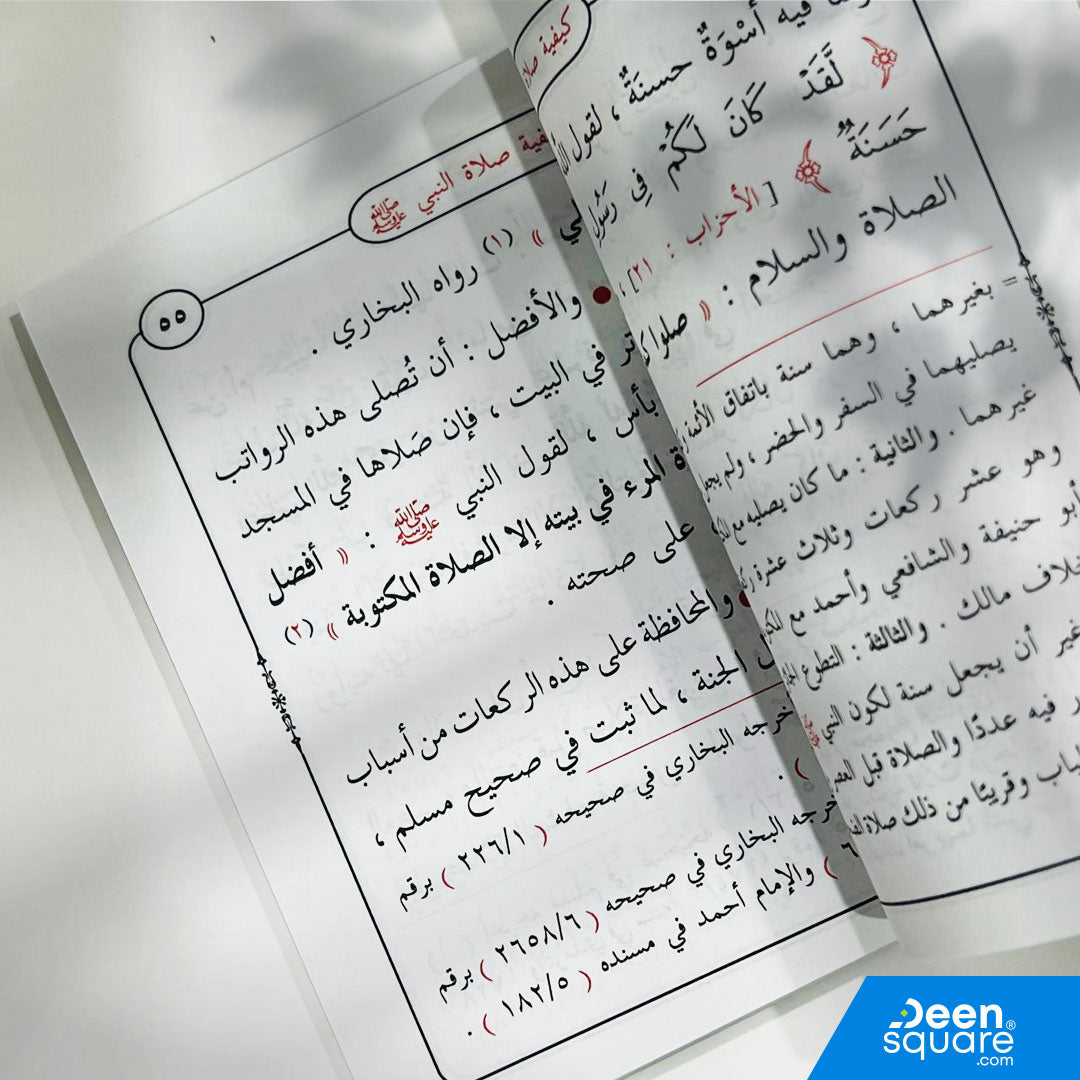 كيفية
فيه أُسْوَةٌ حسنَةٌ ، لقول
﴿ لَّقَدْ كَانَ لَكُمْ فِي رَسُولِ
حَسَنَةٌ ﴾ [ الأحزاب : ٢١] ،
الصلاة والسلام : « صلوا
= بغيرهما ، وهما سنة باتفاق الأئمة
يصليهما في السفر والحضر ، ولم
غيرهما . والثانية : ما كان يصليه مع
وهو عشر ركعات وثلاث عشرة
أبو حنيفة والشافعي وأحمد مع
خلاف مالك . والثالثة : التطوع
غير أن يجعل سنة لكون النبي ﷺ
فيه عددًا والصلاة قبل العصر
وقريبًا من ذلك صلاة
صلاة النبي ﷺ
٥٥
» (١) رواه البخاري .
والأفضل : أن تُصلى هذه الرواتب
في البيت ، فإن صَلاها في المسجد
بأس ، لقول النبي ﷺ : « أفضل
المرء في بيته إلا الصلاة المكتوبة » (٢)
على صحته .
والمحافظة على هذه الركعات من أسباب
الجنة ، لما ثبت في صحيح مسلم ،
البخاري في صحيحه ( ٢٢٦/١ ) برقم
( .
البخاري في صحيحه ( ٢٦٥٨/٦ ) برقم
) والإمام أحمد في مسنده ( ١٨٢/٥ ) .
Deen
square®
.com